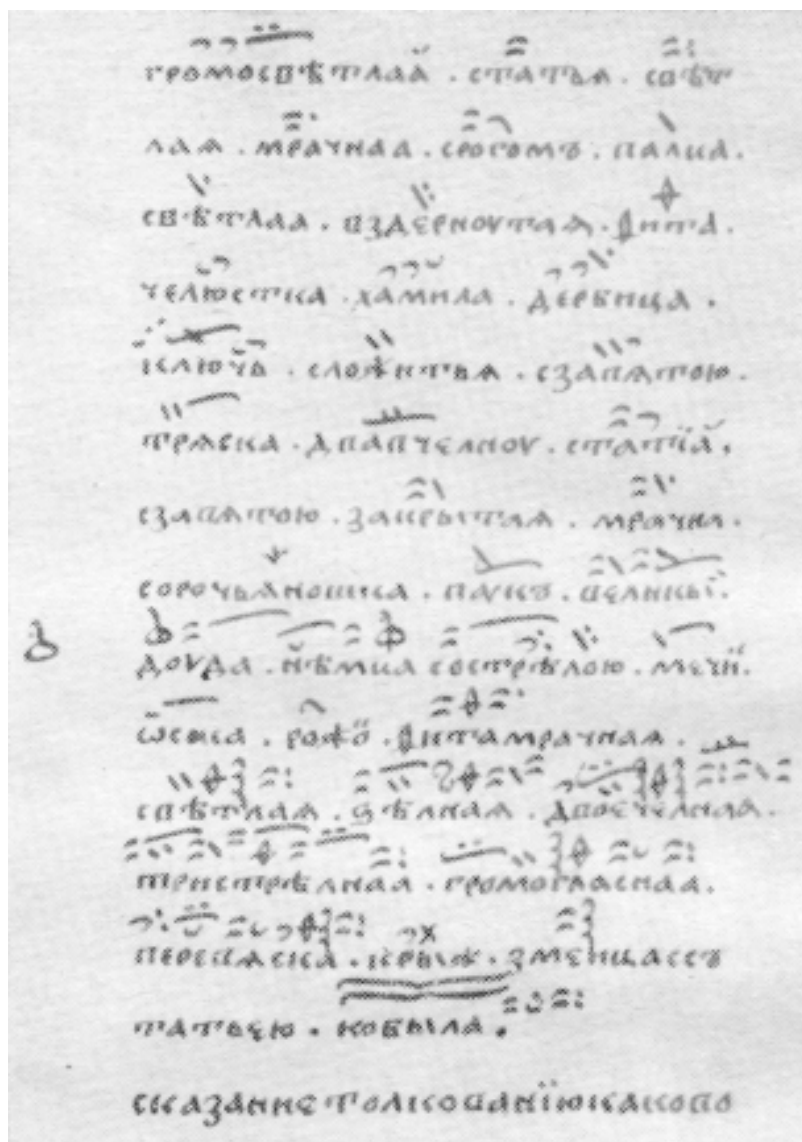 громосвѣтлаꙗ҆ . статьѧ . свѣт
лаѧ . мрачнаа . срогомъ . палка .
свѣтлаѧ . вздернꙋтаѧ . ѳита .
челюстка . хамила . дербица .
ключь . сложитьѧ . сзапѧтою .
трѧска . двавчелнꙋ . статїӑ .
сзапѧтою . закрытаѧ . мрачна .
сорочьѧножка . паꙋкъ . великы̆ .
доуда . нѣмка сострѣлою . мечй .
ѡсока . рожо̆ . ѳитамрачнаѧ .
свѣтлаѧ . ѕѣлнаѧ . двоечелнаѧ .
тристрѣлнаѧ . громогласнаа .
перевѧска . крыж . змеицасъ
татьею . кобыла .
сказаниетолкованїюкаково